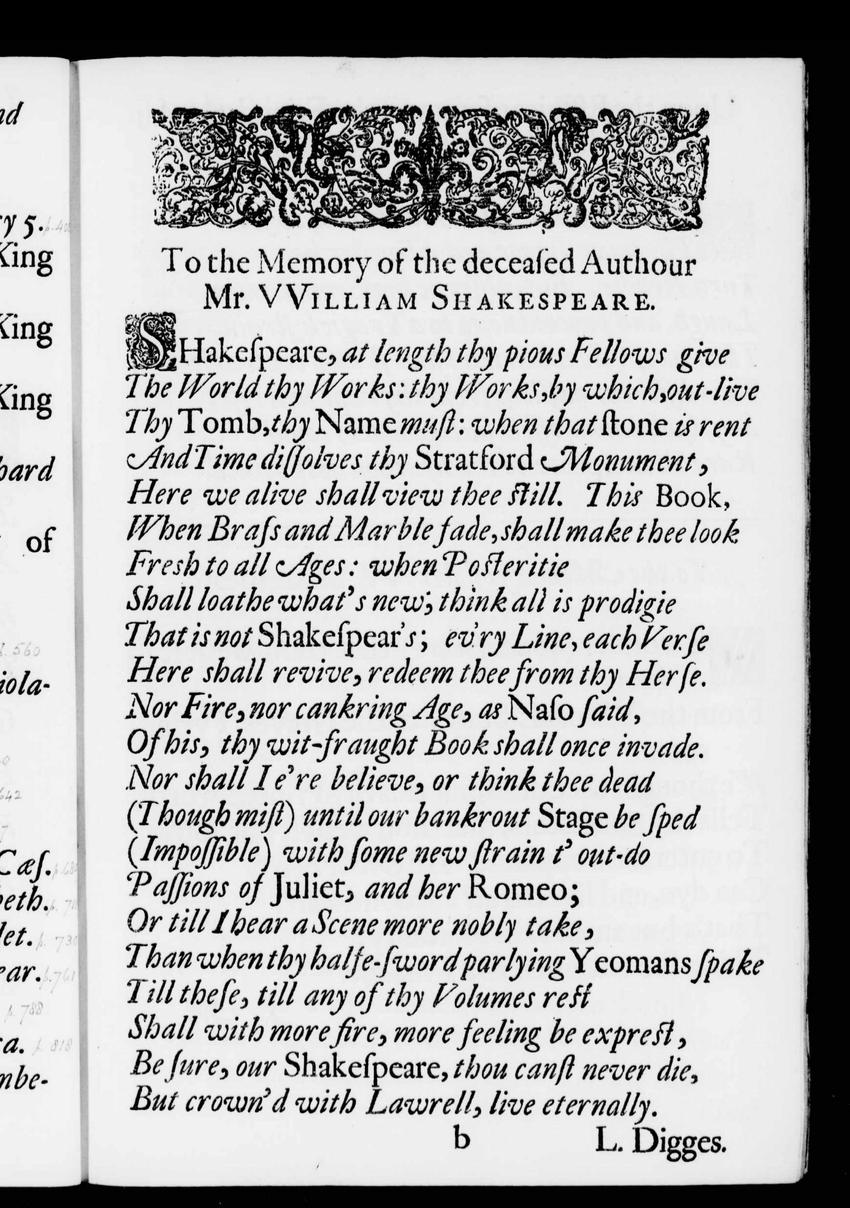 nd
ry 5. p.402
King
King
King
hard
of
p. 560
iola-
642
Cæſ.
beth.
let. p. 730
ear. p.761
p. 788
ra. p. 818
mbe-
To the Memory of the deceaſed Authour
Mr. VVILLIAM SHAKESPEARE.
SHakeſpeare, at length thy pious Fellows give
The World thy Works: thy Works, by which, out-live
Thy Tomb, thy Name muſt: when that ſtone is rent
And Time diſſolves thy Stratford Monument,
Here we alive shall view thee ſtill. This Book,
When Braſs and Marble fade, shall make thee look
Fresh to all Ages: when Poſteritie
Shall loathe what's new; think all is prodigie
That is not Shakeſpear's; ev'ry Line, each Verſe
Here shall revive, redeem thee from thy Herſe.
Nor Fire, nor cankring Age, as Naſo ſaid,
Of his, thy wit-fraught Book shall once invade.
Nor shall I e're believe, or think thee dead
(Though miſt) until our bankrout Stage be ſped
(Impoſſible) with ſome new ſtrain t' out-do
Paſſions of Juliet, and her Romeo;
Or till I hear a Scene more nobly take,
Than when thy halfe-ſword parlying Yeomans ſpake
Till theſe, till any of thy Volumes reſt
Shall with more fire, more feeling be expreſt,
Be ſure, our Shakeſpeare, thou canſt never die,
But crown'd with Lawrell, live eternally.
b L. Digges.